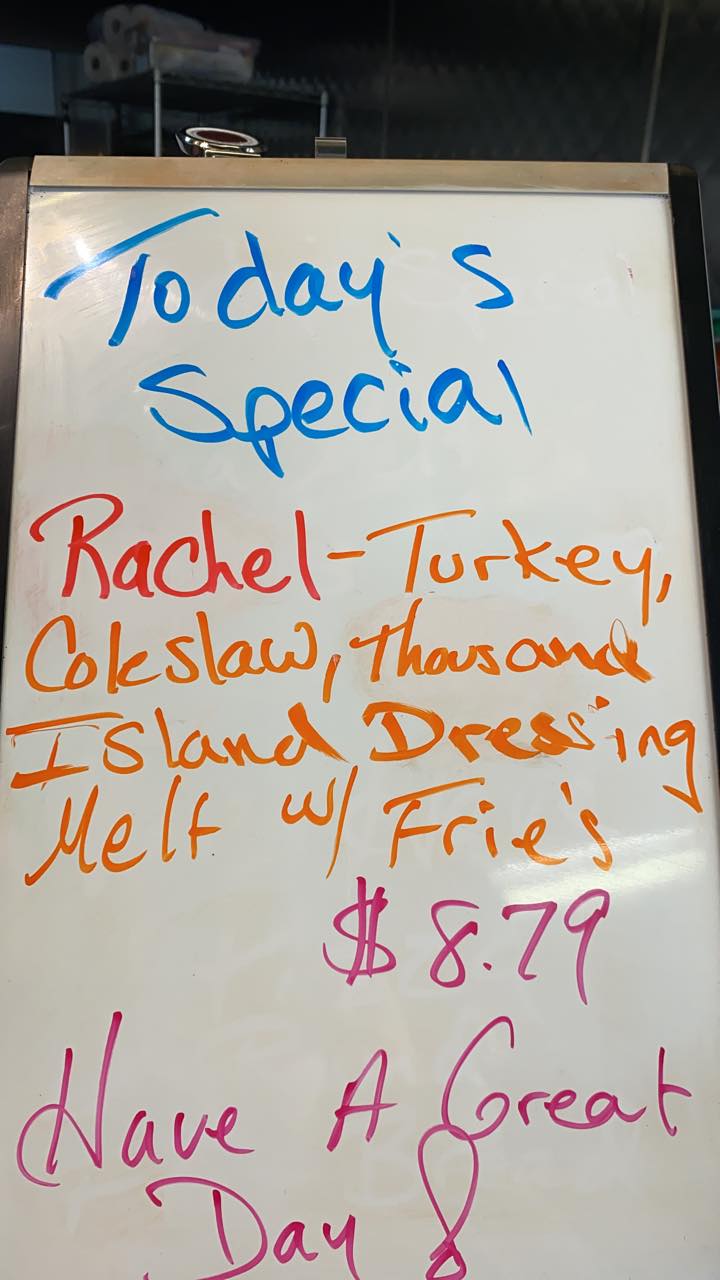 Today's
Special
Rachel-Turkey,
Coleslaw, Thousand
Island Dressing
Melt w/ Frie's
$8.79
Have A Great
Day